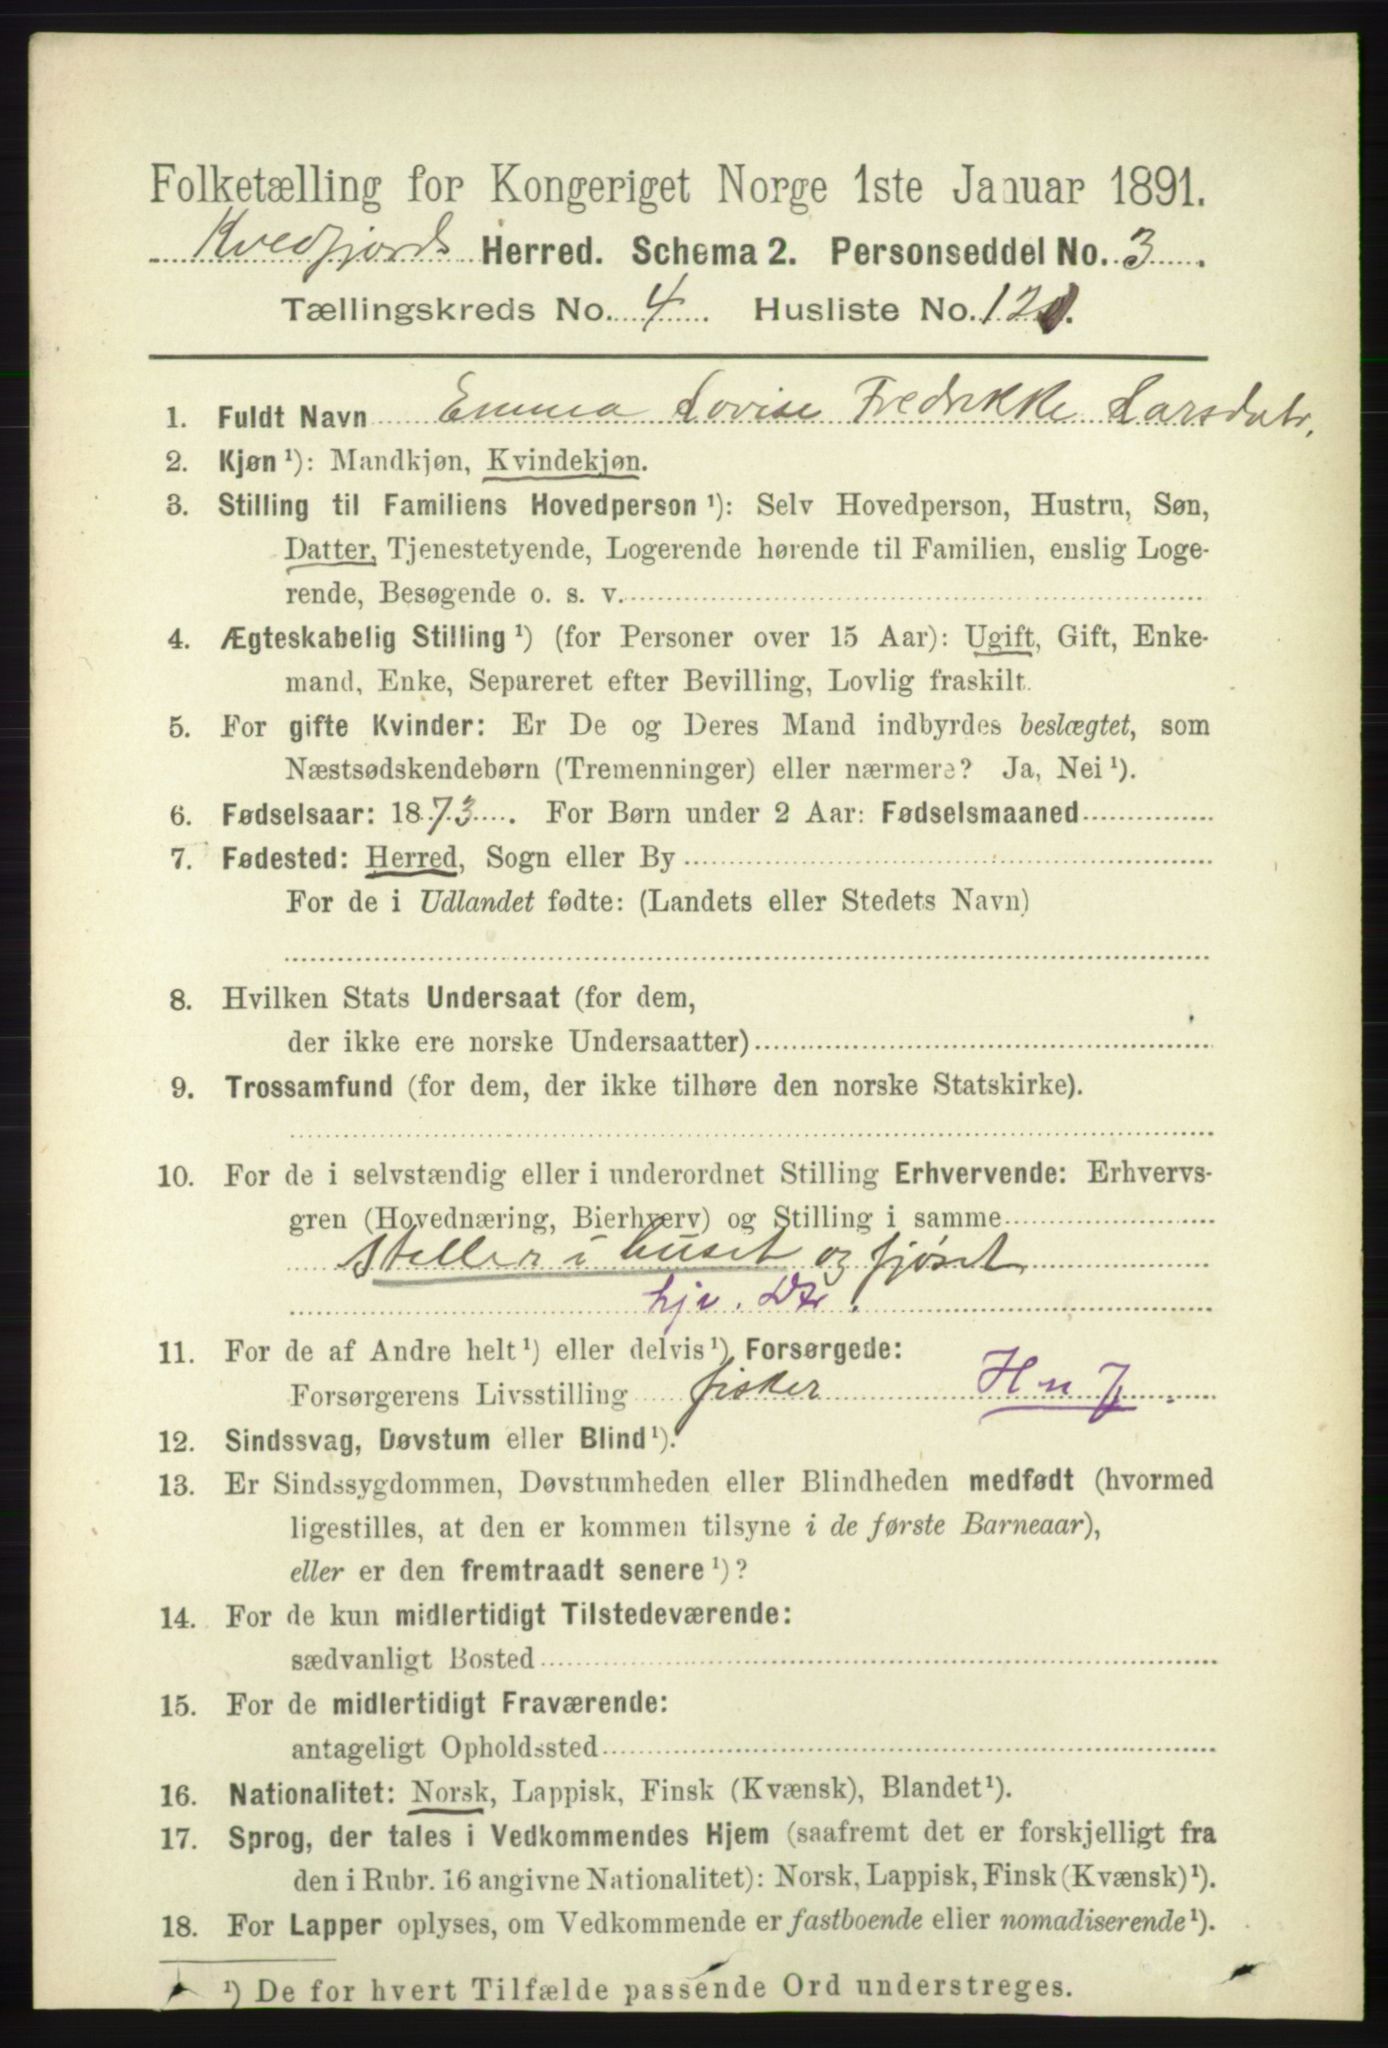 Folketælling for Kongeriget Norge 1ste Januar 1891.
Kvedfjords Herred. Schema 2. Personseddel No. 3
Tællingskreds No. 4 Husliste No. 120.
1. Fuldt Navn Emma Lovise Fredrikke Larsdatr.
2. Kjøn ¹): Mandkjøn, Kvindekjøn.
3. Stilling til Familiens Hovedperson ¹): Selv Hovedperson, Hustru, Søn,
Datter, Tjenestetyende, Logerende hørende til Familien, enslig Loge-
rende, Besøgende o. s. v.
4. Ægteskabelig Stilling ¹) (for Personer over 15 Aar): Ugift, Gift, Enke-
mand, Enke, Separeret efter Bevilling, Lovlig fraskilt.
5. For gifte Kvinder: Er De og Deres Mand indbyrdes beslægtet, som
Næstsødskendebørn (Tremenninger) eller nærmere? Ja, Nei ¹).
6. Fødselsaar: 1873. For Børn under 2 Aar: Fødselsmaaned
7. Fødested: Herred, Sogn eller By
For de i Udlandet fødte: (Landets eller Stedets Navn)
8. Hvilken Stats Undersaat (for dem,
der ikke ere norske Undersaatter)
9. Trossamfund (for dem, der ikke tilhøre den norske Statskirke).
10. For de i selvstændig eller i underordnet Stilling Erhvervende: Erhvervs-
gren (Hovednæring, Bierhverv) og Stilling i samme
Steller i huset og fjøset
hjv. Dtr.
11. For de af Andre helt ¹) eller delvis ¹) Forsørgede:
Forsørgerens Livsstilling fisker
12. Sindssvag, Døvstum eller Blind ¹).
13. Er Sindssygdommen, Døvstumheden eller Blindheden medfødt (hvormed
ligestilles, at den er kommen tilsyne i de første Barneaar),
eller er den fremtraadt senere ¹)?
14. For de kun midlertidigt Tilstedeværende:
sædvanligt Bosted
15. For de midlertidigt Fraværende:
antageligt Opholdssted
16. Nationalitet: Norsk, Lappisk, Finsk (Kvænsk), Blandet ¹).
17. Sprog, der tales i Vedkommendes Hjem (saafremt det er forskjelligt fra
den i Rubr. 16 angivne Nationalitet): Norsk, Lappisk, Finsk (Kvænsk) ¹).
18. For Lapper oplyses, om Vedkommende er fastboende eller nomadiserende ¹).
¹) De for hvert Tilfælde passende Ord understreges.